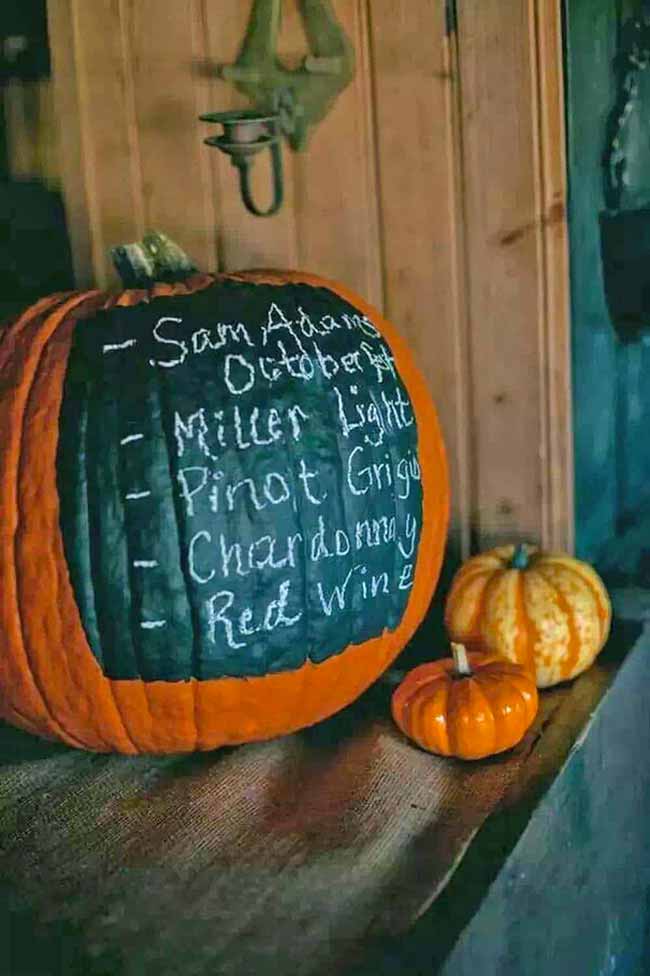 - Sam Adams
Octoberfest
- Miller Light
- Pinot Grigio
- Chardonnay
- Red Wine